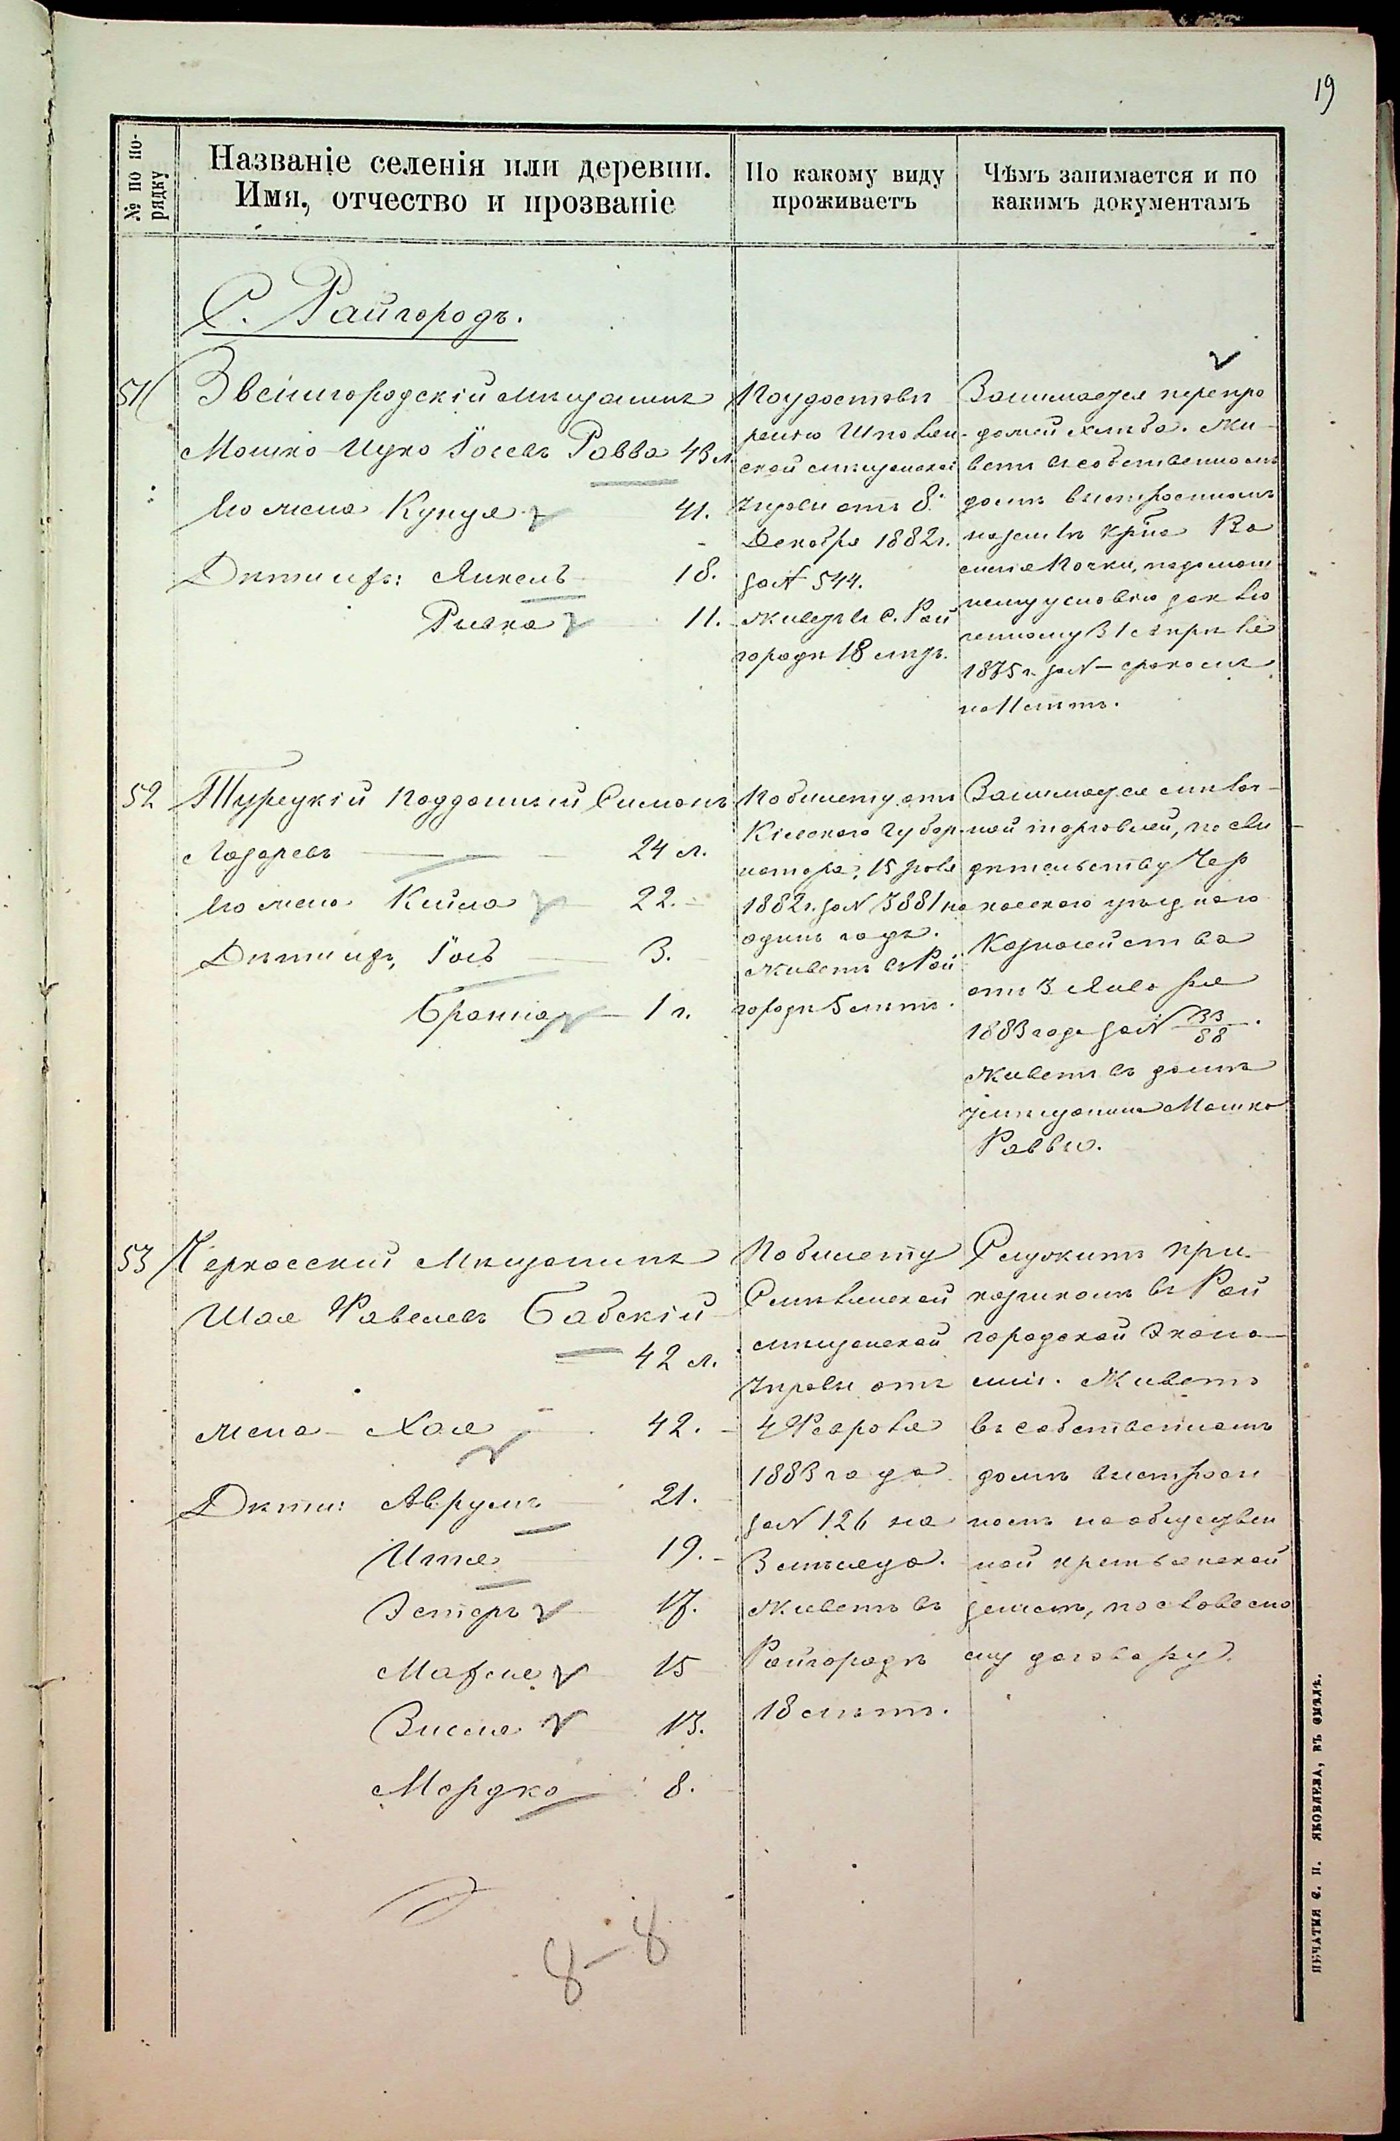 19
№ по по-
рядку
Названіе селенія или деревни.
Имя, отчество и прозваніе
По какому виду
проживаетъ
Чѣмъ занимается и по
какимъ документамъ
С. Райгородъ.
51
Звенигородскій мѣщанинъ
Мошко Ицко Іосевъ Равва 43 л.
Его жена 41.
Дѣти ихъ: Янкель 18.
Рывка 11.
По удостовѣ
ренію Шполян-
ской мѣщанской
Управы отъ 8.
Декабря 1882 г.
за № 544.
Живетъ въ с. Рай
городѣ 18 лѣтъ.
Занимается перепро
дажей хлѣба. Жи-
ветъ въ собственномъ
домѣ выстроенномъ
на землѣ кр-на Ва
силія по домаш
нему условію заклю
ченному 31 октября
1875 г. за № – срокомъ
на 11 лѣтъ.
52
Турецкій подданный Симонъ
Лазаревъ 24 л.
Его жена 22.
Дѣти ихъ, 3.
1 г.
По билету отъ
Кіевскаго Губер
натора, 15
1882 г. за № 3881 на
одинъ годъ.
Живетъ въ Рай
городѣ 5 лѣтъ.
Занимается мелоч-
ной торговлей, по сви
дѣтельству Чер
касскаго уѣзднаго
Казначейства
отъ 3 Января
1883 года за № 33/88.
Живетъ въ домѣ
у мѣщанина Мошко
Раввы.
53
Черкасскій мѣщанинъ
Шая Фавелевъ Бабскій
42 л.
жена Хая 42.
Дѣти: Аврумъ 21.
Итя 19.
Эстеръ 17.
15
13.
Мордко 8.
По билету
Смѣлянской
мѣщанской
Управы отъ
4 Февраля
1883 года
за № 126 на
3 мѣсяца.
Живетъ въ
Райгородѣ
18 лѣтъ.
Служитъ при-
кащикомъ въ Рай
городской эконо-
міи. Живетъ
въ собственномъ
домѣ выстроен
номъ на обществен
ной крестьянской
землѣ, по словесно
му договору.
8-8
ПЕЧАТНЯ С. П. ЯКОВЛЕВА, ВЪ СМѢЛѢ.